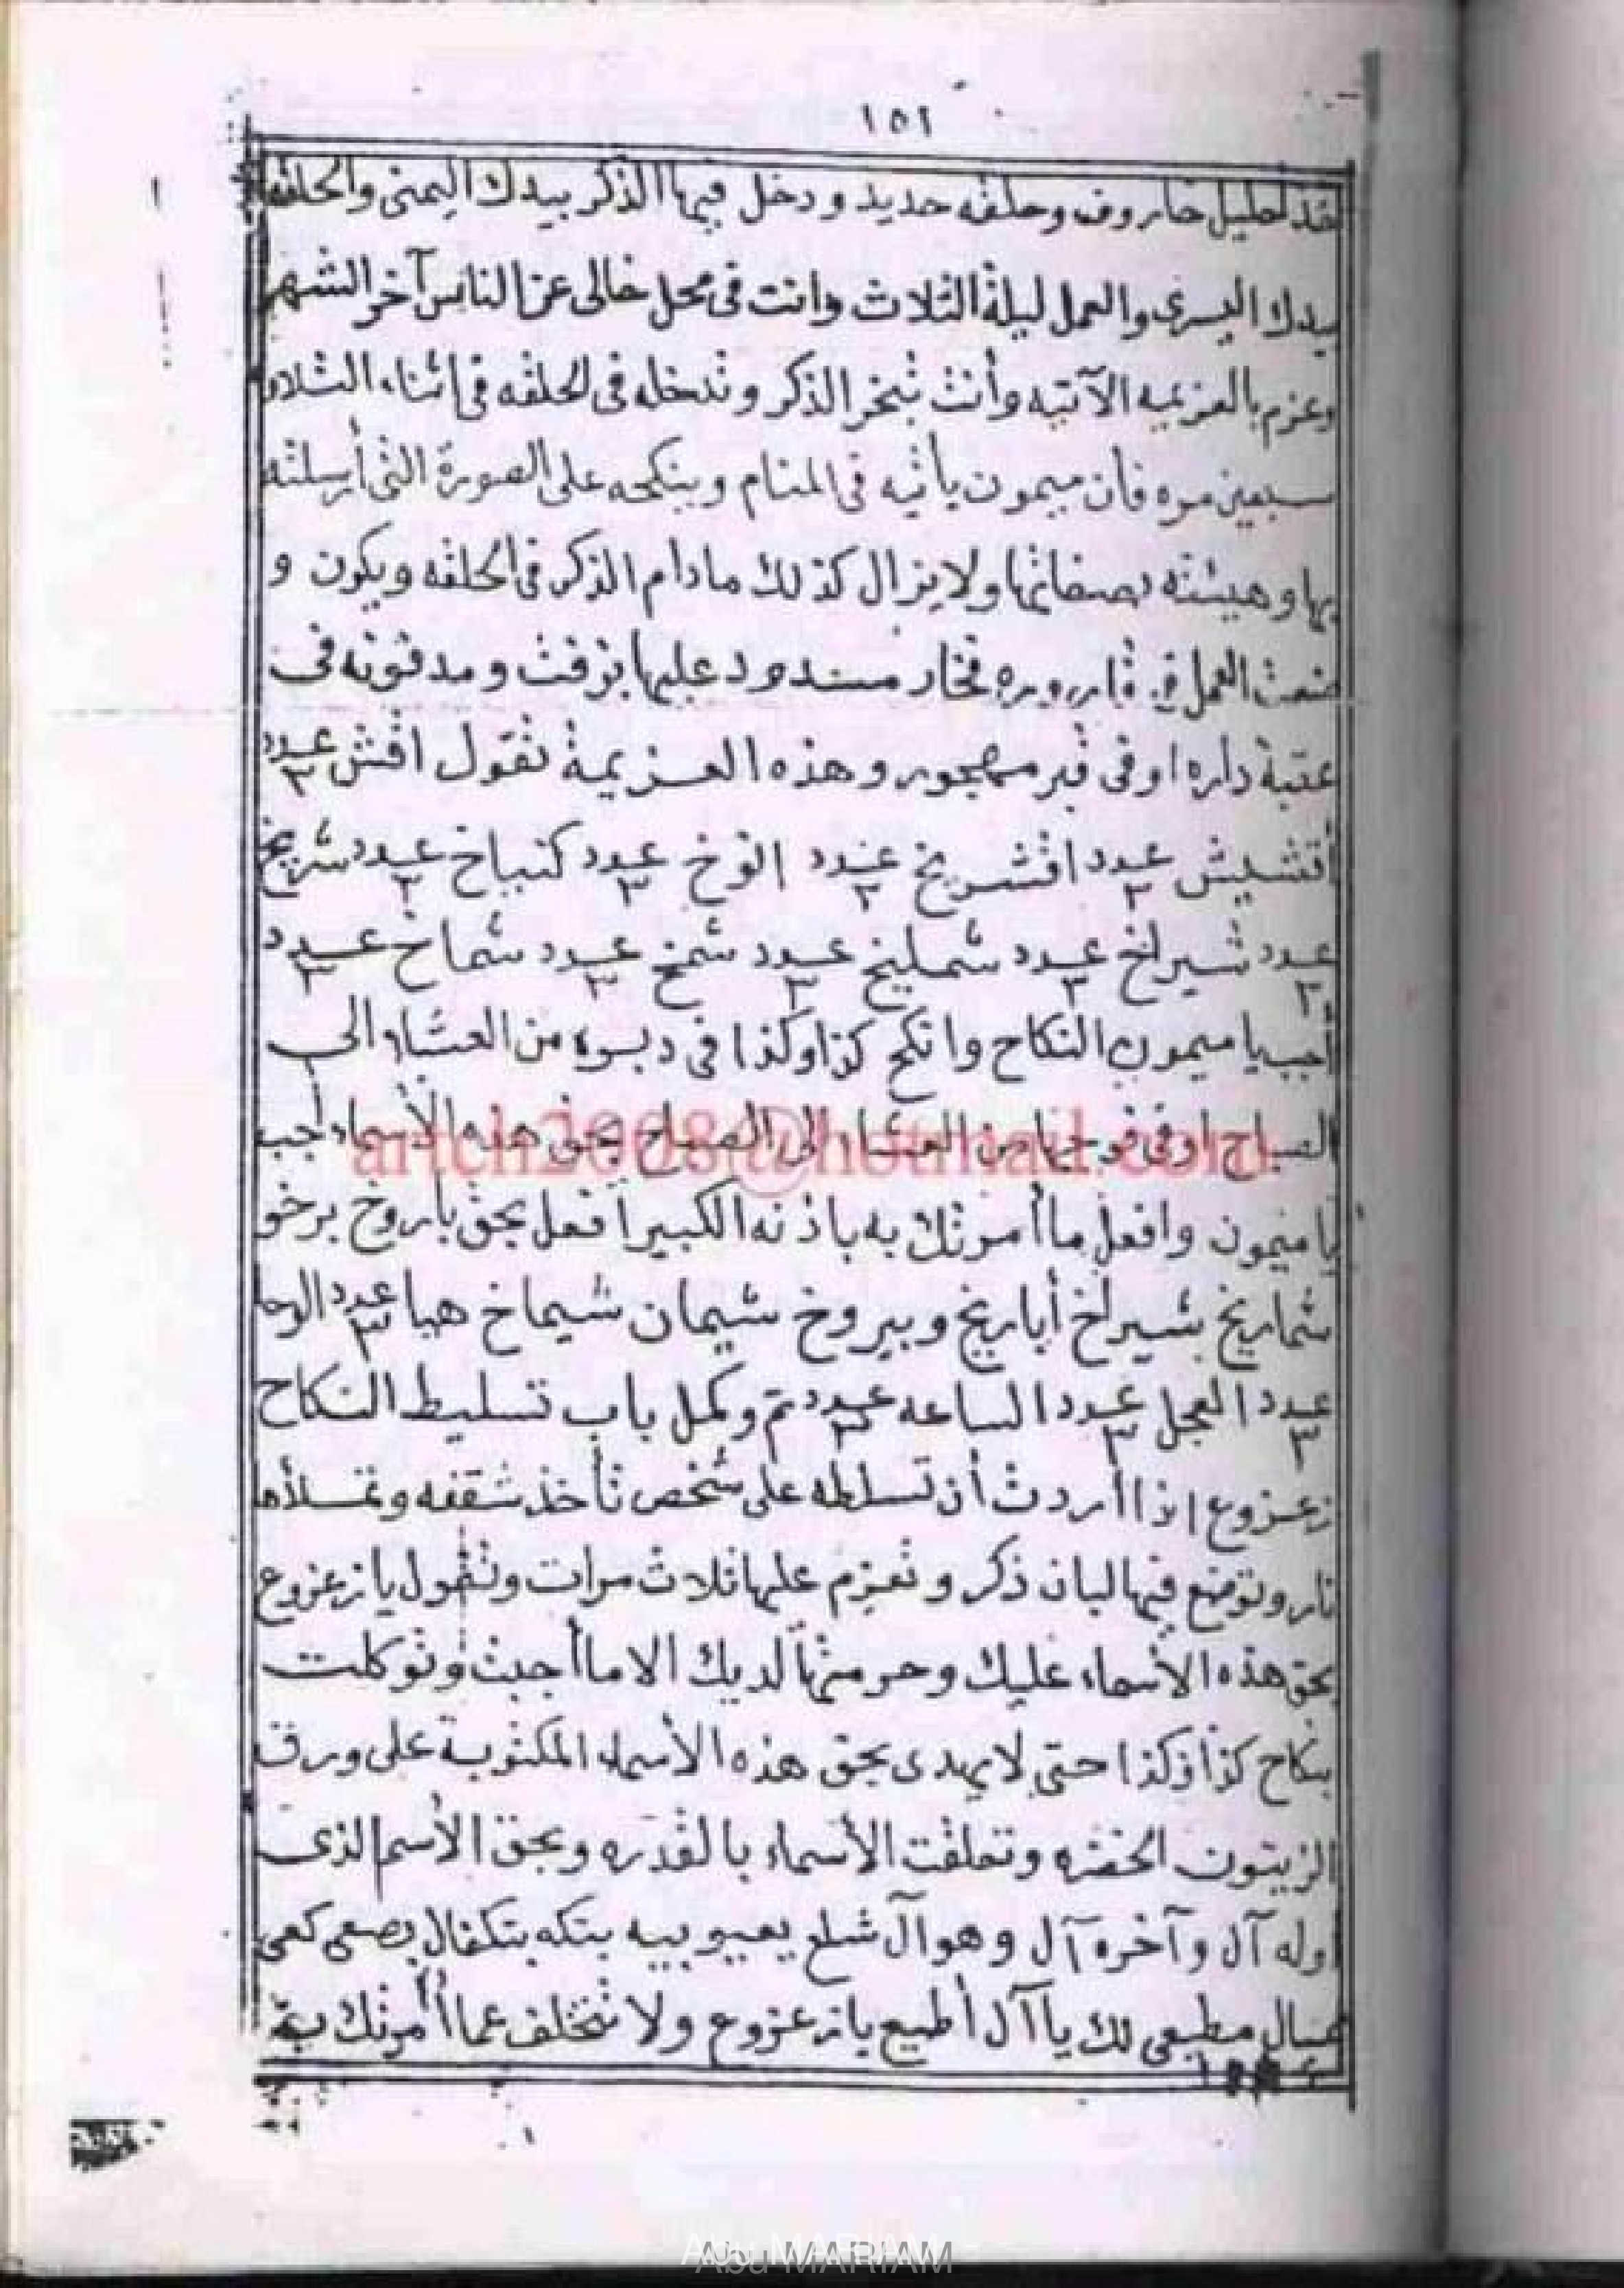 ١٥١
خذ احليل خاروف وحلقه حديد ودخل فيها الذكر بيدك اليمنى والحلقه
بيدك اليسرى والعمل ليلة الثلاث وانت في محل خالى عن الناس آخر الشهر
وعزم بالعزيمه الآتيه وأنت تبخر الذكر وتدخله فى الحلقه فى اثناء التلاو
سبعين مره فأن ميمون يأتيه فى المنام وينكحه على الصورة التى أرسلته
بها وهيئته بصفاتها ولا يزال كذلك مادام الذكر فى الحلقه ويكون و
ضعت العمل فى قاروره فخار مسدود عليها بزفت ومدفونه فى
عتبة داره اوفى قبر مهجور وهذه العزيمة تقول اقش عدد ٣
اقشليش عدد ٣ اقشريخ عدد ٣ الوخ عدد ٣ كنباخ عدد ٣ شريخ
عدد ٣ شيراخ عدد ٣ شمليخ عدد ٣ شمخ عدد ٣ شماخ عدد ٣
أجب يا ميمون النكاح وانكح كذا وكذا فى دبره من العشاء الى
الصباح اوفى فرجها من العشاء الى الصباح بحق هذه الأسماء اجب
يا ميمون وافعل ما أمرتك به باذنه الكبير افعل بحق باروخ برخو
شماريخ بشيراخ أباريخ وبيروخ شيمان شيماخ هيا عدد ٣ الوحا
عدد ٣ العجل عدد ٣ الساعه عدد ٣ تم وكمل باب تسليط النكاح
زعزوع اذا أردت أن تسلطه على شخص تأخذ شقفه وتملأها
نار وتوضع فيها لبان ذكر وتعزم عليها ثلاث مرات وتقول يا زعزوع
بحق هذه الأسماء عليك وحرمتها لديك الا ما أجبت وتوكلت
بنكاح كذا وكذا حتى لا يهدى بحق هذه الأسماء المكتوبة على ورق
الزيتون الخضره وتعلقت الأسماء بالقدره وبحق الأسم الذى
اوله آل وآخره آل وهو آل شلع يعيوبيه بتكه بتكفال بصعى كعى
مطبعى لك يا آل أطيع يا زعزوع ولا تتخلف عما أمرتك به
artch2008@hotmail.com
Abu MARIAM